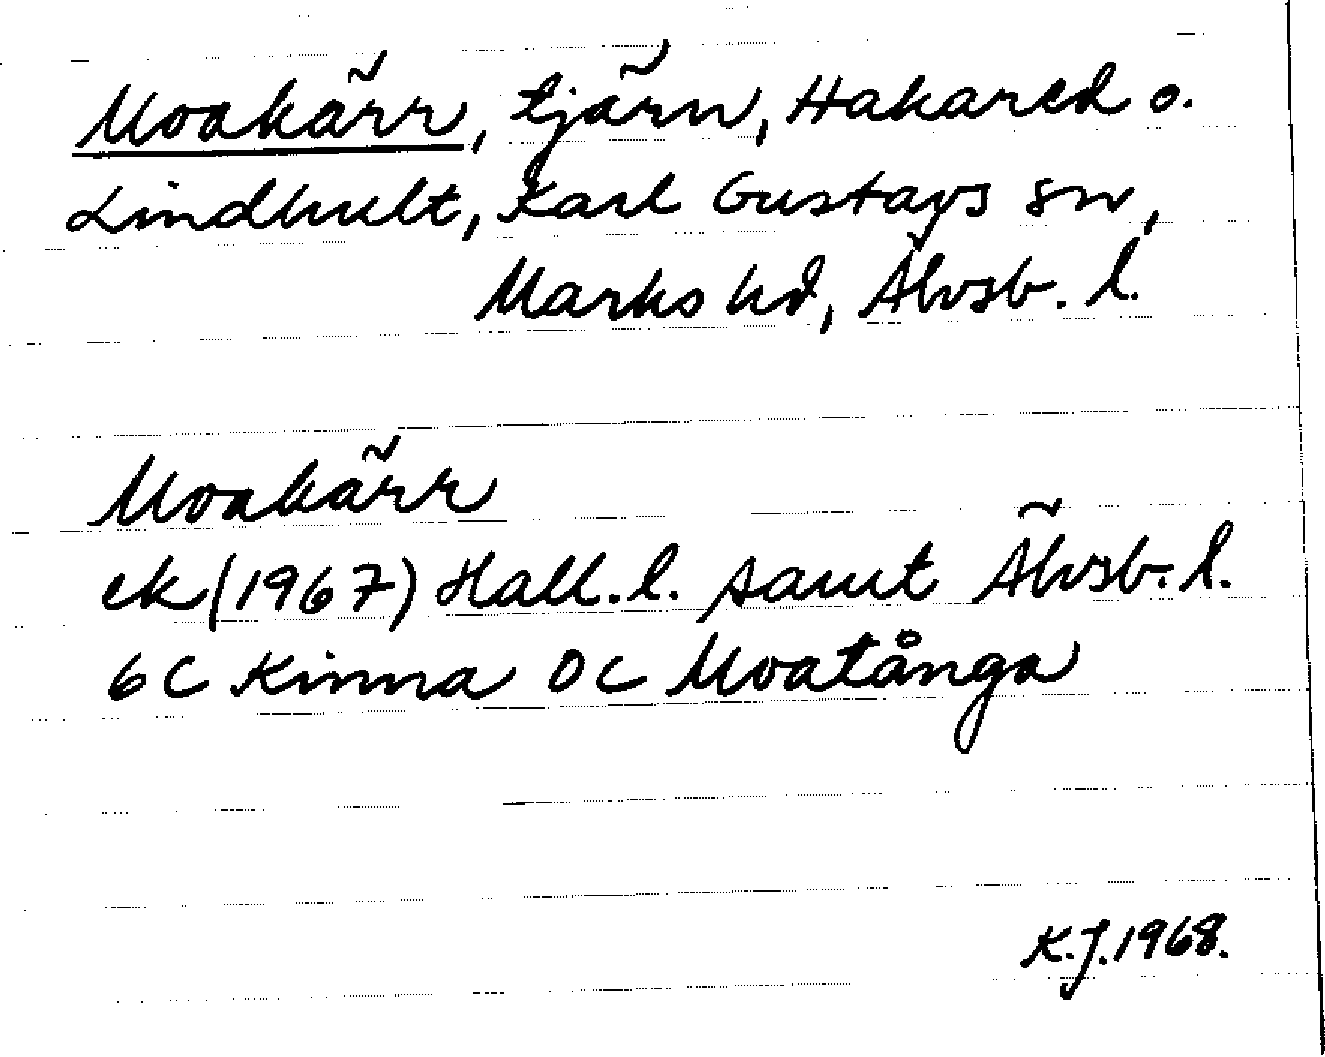 Moakärr, tjärn, Hakared o.
Lindhult, Karl Gustavs sn,
Marks hd, Älvsb. l.
Moakärr
ek (1967) Hall. l. samt Älvsb. l.
6C Kinna 0c Moatånga
K.J. 1968.